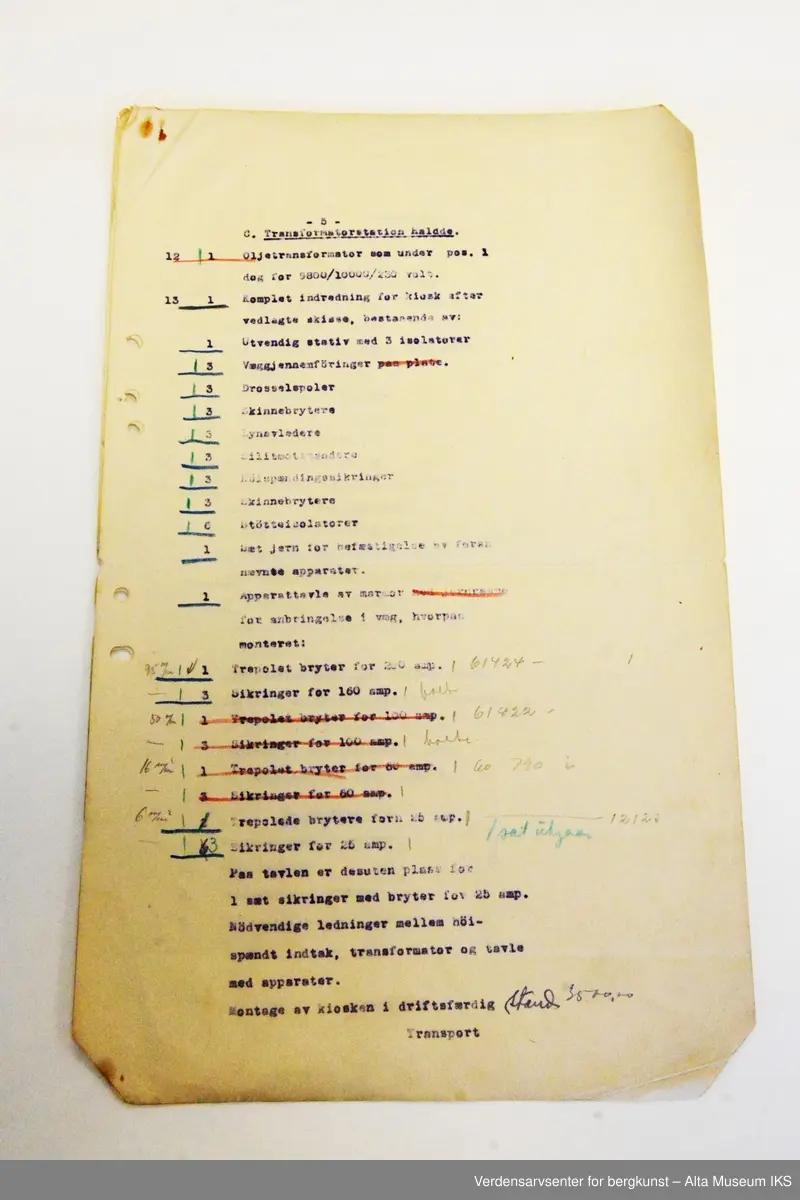 - 5 -
C. Transformatorstation haldde.
12 1 Oljetransformator som under pos. 1
dog for 9800/10000/230 volt.
13 1 Komplet indredning for kiosk efter
vedlagte skisse, bestaaende av:
1 Utvendig stativ med 3 isolatorer
3 Væggjennemföringer paa plate.
3 Drosselspoler
3 Skinnebrytere
3 Lynavledere
3 Silitmotstandere
3 Höispændingssikringer
3 Skinnebrytere
6 Stötteisolatorer
1 Sæt jern for befæstigelse av foran
nævnte apparater.
1 Apparattavle av marmor med
for anbringelse i væg, hvorpaa
monteret:
1 Trepolet bryter for 200 amp. 61424 -
- 3 Sikringer for 160 amp.
1 Trepolet bryter for 100 amp. 61422 -
- 3 Sikringer for 100 amp.
1 Trepolet bryter for 60 amp. 60 790
- 3 Sikringer for 60 amp.
1 Trepolede brytere forn 25 amp.
1 sæt utgaar
- 3 Sikringer for 25 amp.
Paa tavlen er desuten plass for
1 sæt sikringer med bryter for 25 amp.
Nödvendige ledninger mellem höi-
spændt indtak, transformator og tavle
med apparater.
Montage av kiosken i driftsfærdig stand 3500,00
Transport
Verdensarvsenter for bergkunst – Alta Museum IKS